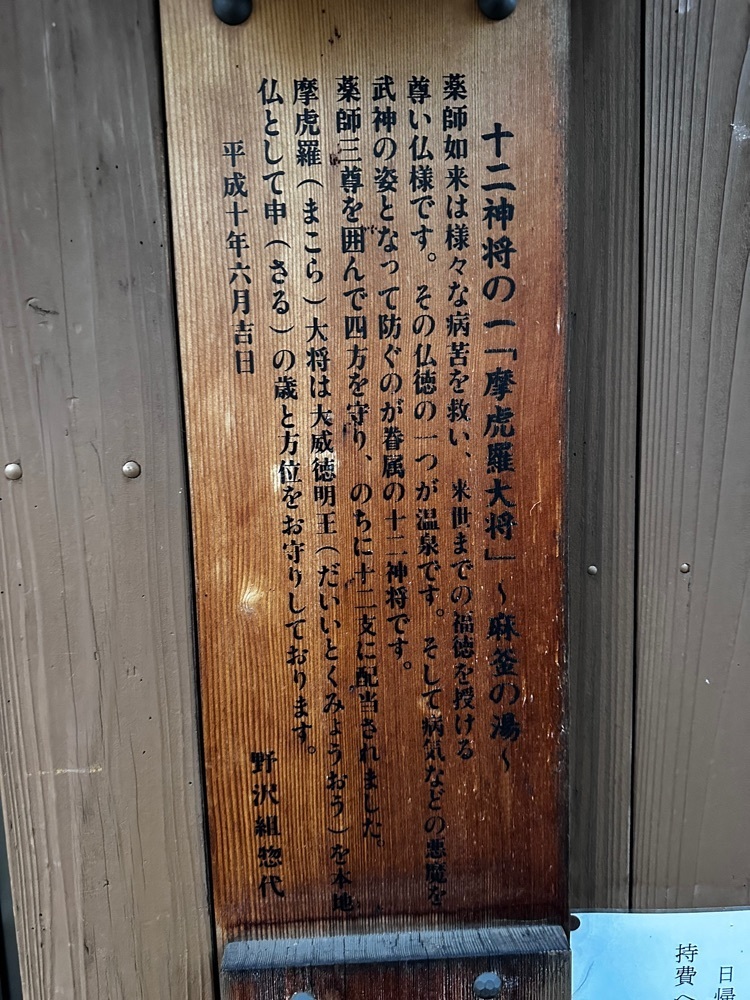 十二神将の一「摩虎羅大将」～麻釜の湯～
薬師如来は様々な病苦を救い、来世までの福徳を授ける
尊い仏様です。その仏徳の一つが温泉です。そして病気などの悪魔を
武神の姿となって防ぐのが眷属の十二神将です。
薬師三尊を囲んで四方を守り、のちに十二支に配当されました。
摩虎羅（まこら）大将は大威徳明王（だいいとくみょうおう）を本地
仏として申（さる）の歳と方位をお守りしております。
平成十年六月吉日
野沢組惣代
日帰
持費へ